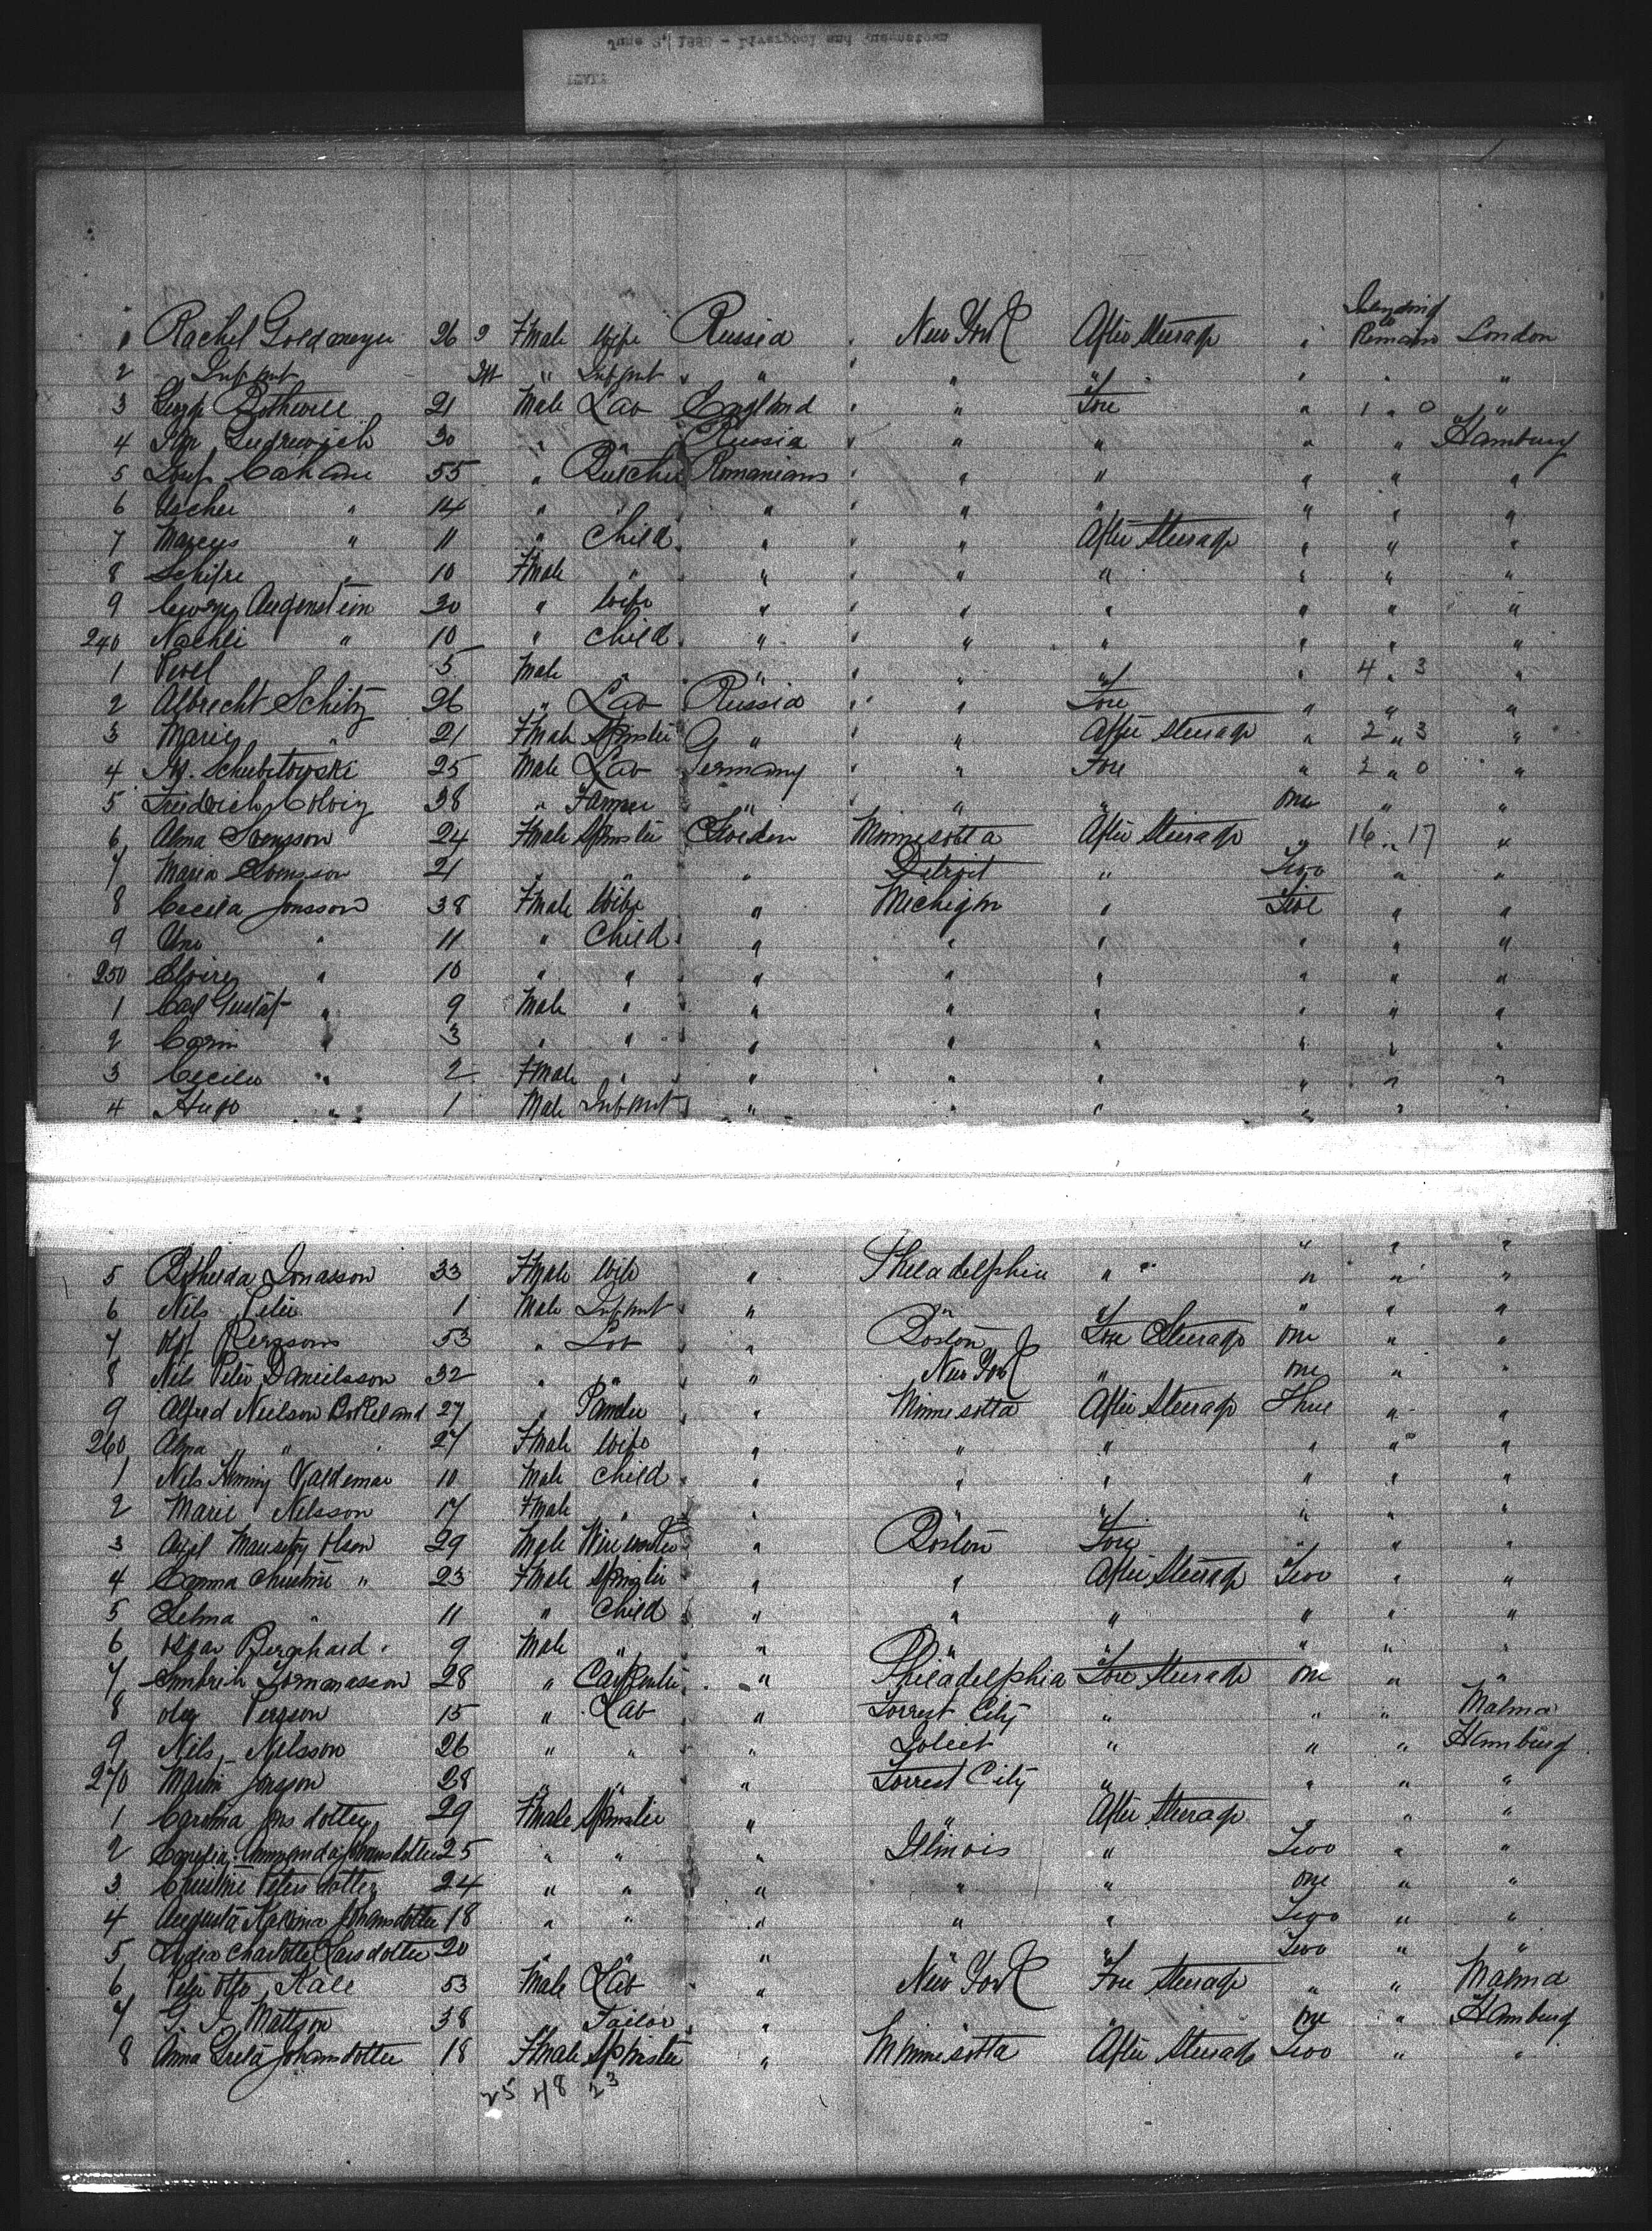 June 1888 - Liverpool and Queenstown
1 Rachel Goldmeyer 26 9 Fmale Wife Russia New York After Steerage Intending to Remain London
2 " Infant " Infant " " " "
3 George Bothwell 21 Male Lab England " Fore " 1 " 0 "
4 30 " " Russia " " " " Hamburg
5 Josef Cahane 55 " Butcher Romanians " " " " "
6 Uscher " 14 " " " " " " " "
7 Marcus " 11 " Child " " After Steerage " " "
8 Schifre " 10 Fmale " " " " " " "
9 Augenstein 30 " Wife " " " " " "
240 Nachli " 10 " Child " " " " " "
1 5 Male " " " " " 4 " 3 "
2 Albrecht Schitz 26 " Lab Russia " Fore " " "
3 Marie " 21 Fmale Spinster " " After Steerage " 2 " 3 "
4 M. Schubitowski 25 Male Lab Germany " Fore " 2 " 0 "
5 Friedrich 38 " Farmer " " " one " "
6 Alma Svensson 24 Fmale Spinster Sweden Minnesotta After Steerage " 16 " 17 "
7 Maria Svensson 21 " " " Detroit " Two " "
8 Cecila Jonsson 38 Fmale Wife " Michigan " Five " "
9 Uno " 11 " Child " " " " " "
250 Elvire " 10 " " " " " " " "
1 Carl Gustaf " 9 Male " " " " " " "
2 Carin " 3 " " " " " " " "
3 Cecilia " 2 Fmale " " " " " " "
4 Hugo " 1 Male Infant " " " " " "
" " "
5 Jonasson 33 Fmale Wife " Philadelphia " " " "
6 Nils Peter 1 Male Infant " " " " " "
7 Olof Persson 53 " Lab " Boston Fore Steerage one " "
8 Nils Peter Danielsson 32 " " " New York " one " "
9 Alfred Neilson 27 " Painter " Minnesotta After Steerage Three " "
260 Alma " " 27 Fmale Wife " " " " " "
1 Nils Henning Valdemar 10 Male Child " " " " " "
2 Marie Nelsson 17 Fmale " " " " " " "
3 Axel Olson 29 Male " Boston Fore " " "
4 Emma Christine " 23 Fmale Spinster " " After Steerage Two " "
5 Selma " 11 " Child " " " " " "
6 Oscar Berghard " 9 Male " " " " " " "
7 28 " Carpenter " Philadelphia Fore Steerage one " "
8 Persson 15 " Lab " Forrest City " " " Malma
9 Nils Nelsson 26 " " " Joliet " " " Hamburg
270 Martin Jonsson 28 " " " Forrest City " " " "
1 Carolina Jonsdotter 29 Fmale Spinster " " After Steerage " "
2 Amanda Johansdotter 25 " " " Illinois " Two " "
3 Christine Petersdotter 24 " " " " " one " "
4 Augusta Karolina Johansdotter 18 " " " " " Two " "
5 Lydia Charlotte Larsdotter 20 " " " " " Two " "
6 Peter Otto 53 Male Lab " New York Fore Steerage " " Malma
7 Mattson 38 " Tailor " " " one " Hamburg
8 Anna Greta Johansdotter 18 Fmale Spinster " Minnisotta After Steerage Two " "
25 48 23